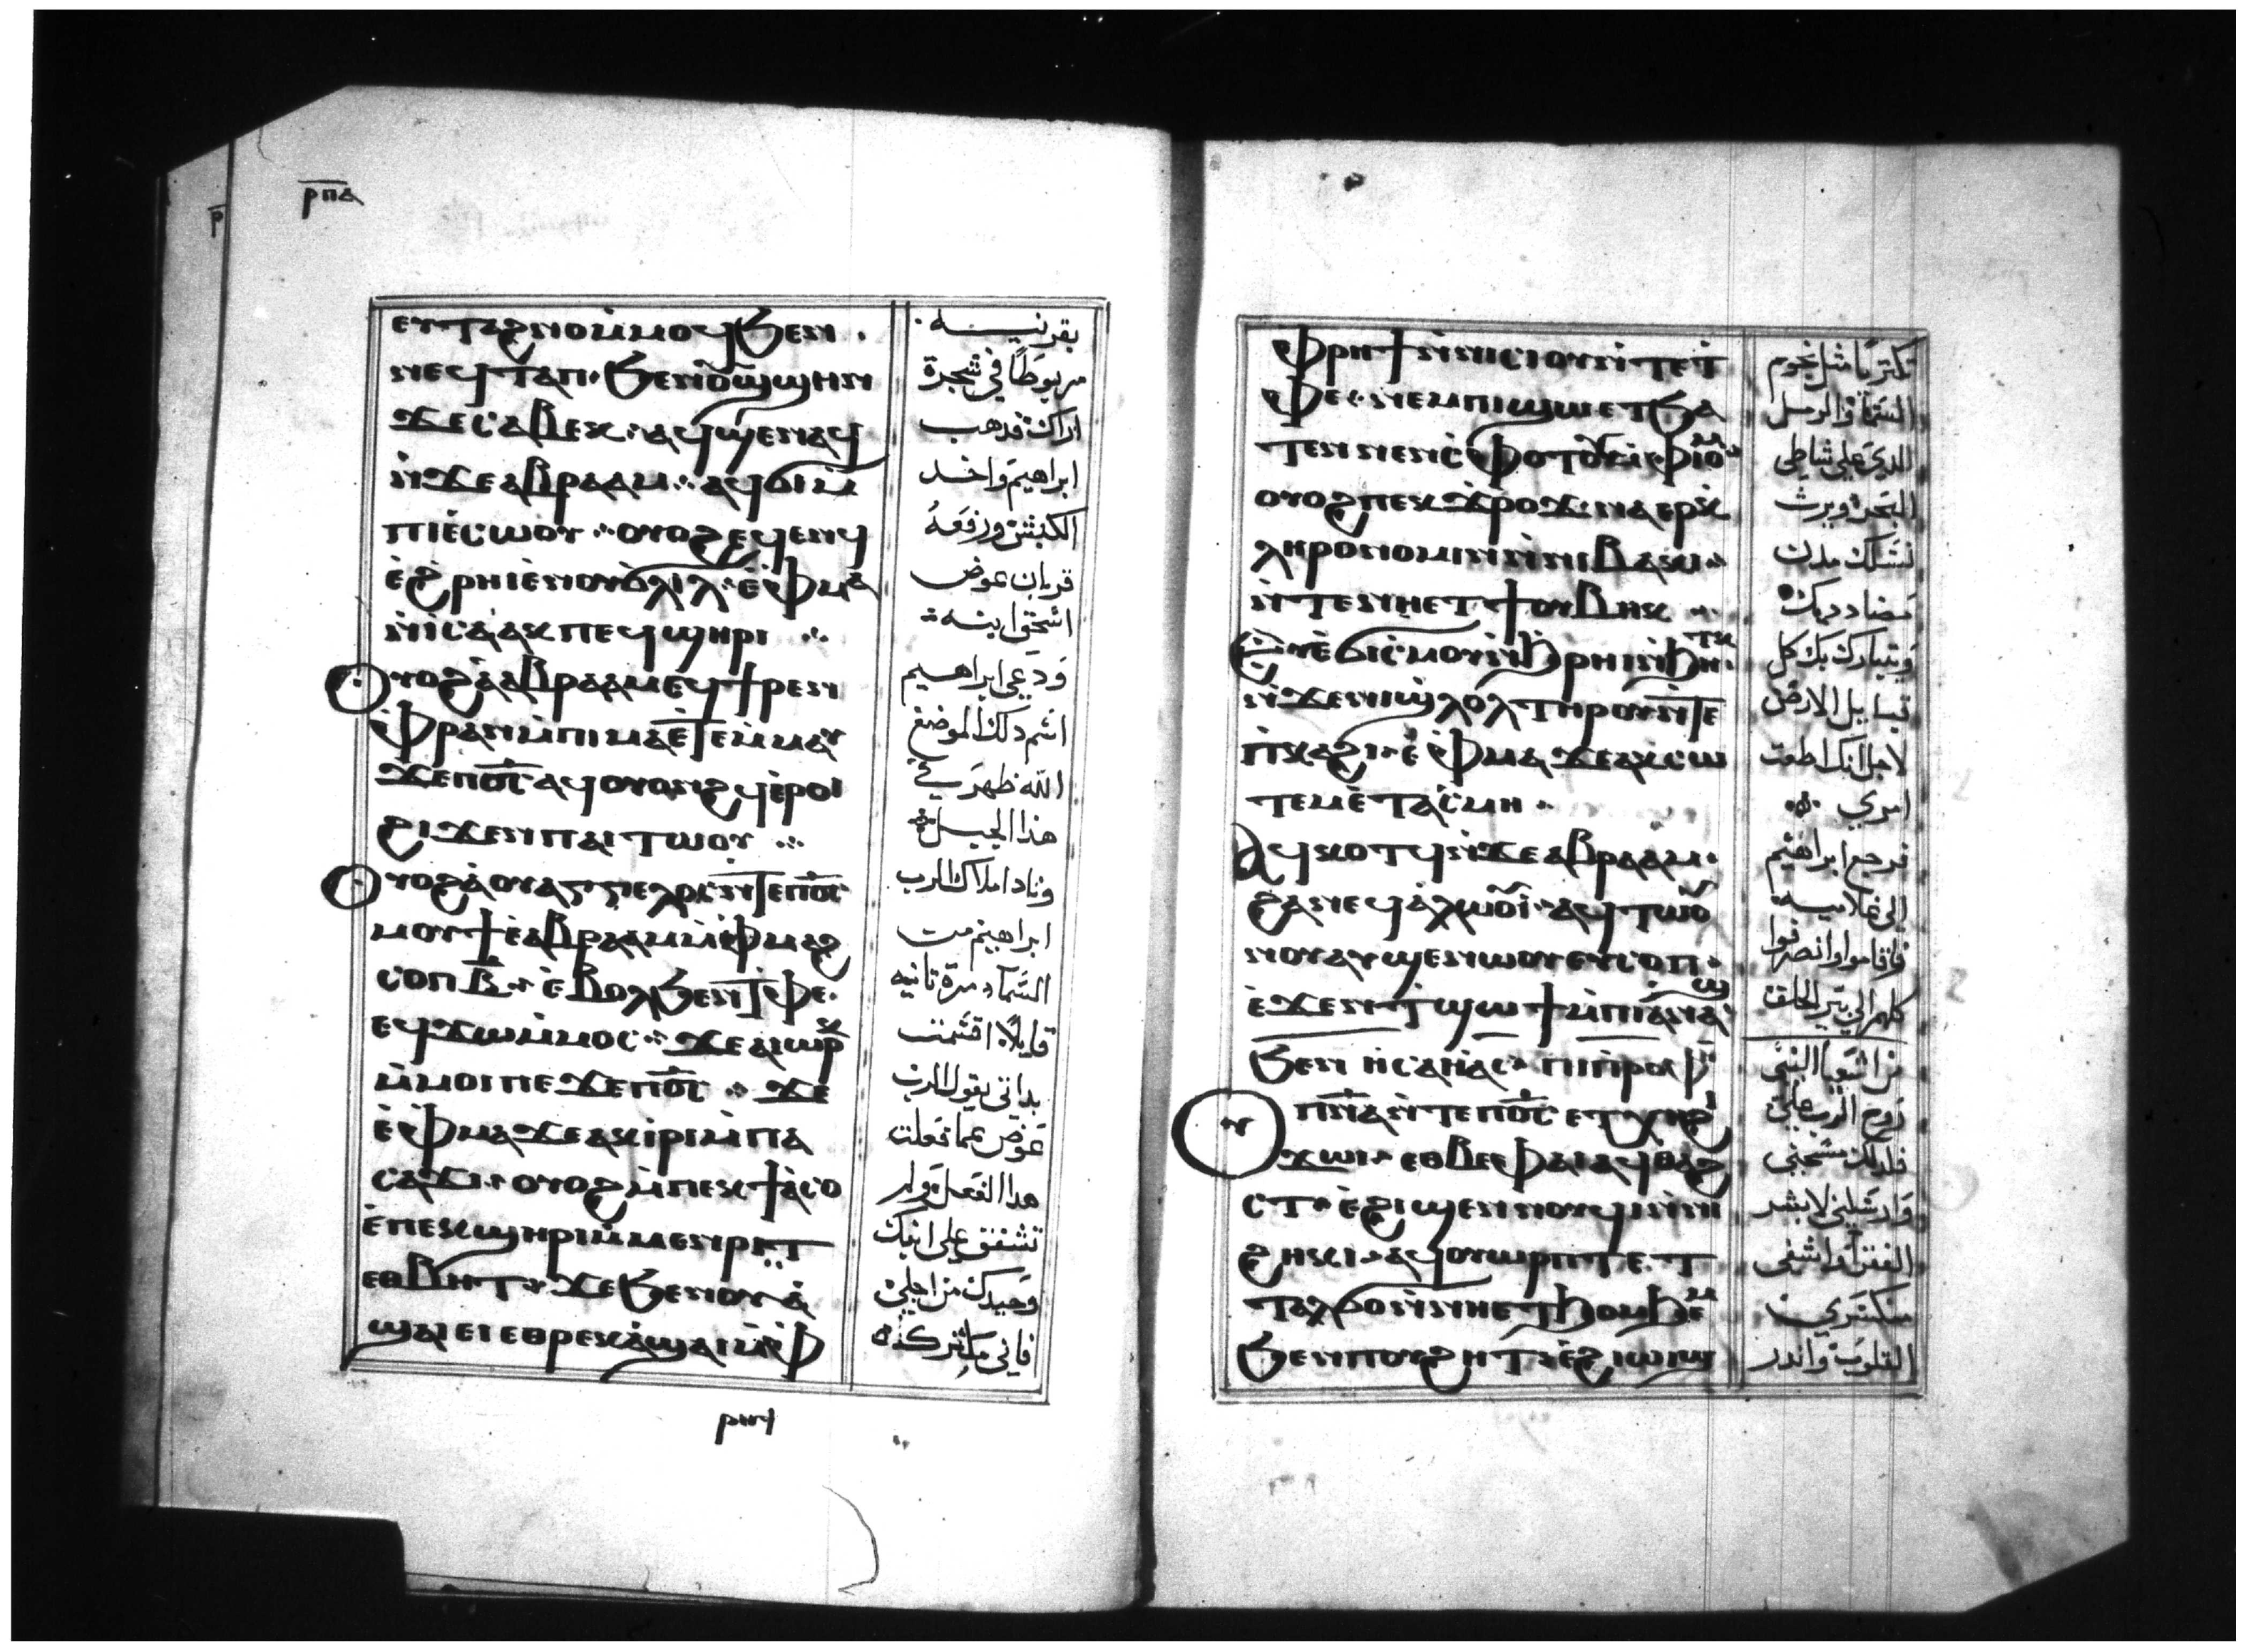 ⲣ̅ⲡ̅ⲁ̅
ⲉⲩⲧⲁϩⲛⲟⲙ̀ⲙⲟϥϧⲉⲛ
ⲛⲉϥⲧⲁⲡ ϧⲉⲛⲟⲩϣϣⲏⲛ
ϫⲉⲥⲁⲃⲉⲕ ⲁϥϣⲉⲛⲁϥ
ⲛ̀ϫⲉⲁⲃⲣⲁⲁⲙ ⲁϥϭⲓⲙ̀
ⲡⲓⲉ̀ⲥⲱⲟⲩ ⲟⲩⲟϩⲉϥⲉⲛϥ
ⲉ̀ϩⲣⲏⲓⲉ̀ⲛⲟⲩϭⲗⲓⲗ ⲉ̀ⲫⲙⲁ
ⲛ̀ⲓⲥⲁⲁⲕⲡⲉϥϣⲏⲣⲓ
ⲟⲩⲟϩⲁ̀ⲁⲃⲣⲁⲁⲙⲉϥϯⲣⲉⲛ
ⲫⲣⲁⲛⲙ̀ⲡⲓⲙⲁⲉ̀ⲧⲉⲙⲙⲁⲩ
ϫⲉⲡⲟ̅ⲥ̅ⲁϥⲟⲩⲟⲛϩϥⲉ̀ⲣⲟⲓ
ϩⲓϫⲉⲛⲡⲁⲓⲧⲱⲟⲩ
ⲟⲩⲟϩⲁ̀ⲟⲩⲁⲅⲅⲉⲗⲟⲥⲛ̀ⲧⲉⲡⲟ̅ⲥ̅
ⲙⲟⲩϯⲉ̀ⲁⲃⲣⲁⲁⲙⲙ̀ⲫⲙⲁϩ
ⲥⲟⲡⲃ̅ ⲉ̀ⲃⲟⲗϧⲉⲛⲧ̀ⲫⲉ
ⲉϥϫⲱⲙ̀ⲙⲟⲥ ϫⲉⲁⲓⲱⲣⲕ
ⲙ̀ⲙⲟⲓⲡⲉϫⲉⲡⲟ̅ⲥ̅ ϫⲉ
ⲉ̀ⲫⲙⲁϫⲉⲁⲕⲓⲣⲓⲙ̀ⲡⲁ
ⲥⲁϫⲓ ⲟⲩⲟϩⲙ̀ⲡⲉⲕϯⲁ̀ⲥⲟ
ⲉ̀ⲡⲉⲕϣⲏⲣⲓⲙ̀ⲙⲉⲛⲣⲓⲧ
ⲉⲑⲃⲏⲧ ϫⲉϧⲉⲛⲟⲩⲁ̀
ϣⲁⲓⲉⲓⲉⲑⲣⲉⲕⲁ̀ϣⲁⲓⲙ̀ⲫ
بقرنيه
مربوطاً في شجرة
اراك فدهب
ابراهيم واخد
الكبش ورفعهُ
قربان عوض
اسحق ابنه
ودعي ابراهيم
اسم دلك الموضع
الله ظهر لي في
هذا الجبل
ونادا ملاك الرب
ابراهيم من
السما دمرة تانيه
قايلاً اقسمت
بداتي يقول الرب
عوض عما فعلت
هدا الفعل ولم
تشفق علي ابنك
وحيدك من اجلي
فاني مكتر كثره
ⲫⲣⲏϯⲛ̀ⲛⲓⲥⲓⲟⲩⲛ̀ⲧⲉⲧ
ⲫⲉ ⲛⲉⲙⲡⲓϣⲱⲉⲧϧⲁ
ⲧⲉⲛⲛⲉⲛⲥ̀ⲫⲟⲧⲟⲩⲙ̀ⲫⲓⲟⲙ
ⲟⲩⲟϩⲡⲉⲕϫ̀ⲣⲟϫ ⲛⲁⲉⲣⲕ̀
ⲗⲏⲣⲟⲛⲟⲙⲓⲛ̀ⲛⲓⲃⲁⲕⲓ
ⲛ̀ⲧⲉⲛⲏⲉⲧϯⲟⲩⲃⲏⲕ
ⲉⲩⲉ̀ϭⲓⲥⲙⲟⲩⲛ̀ϧⲣⲏⲓⲛ̀ϧⲏⲧⲕ
ⲛ̀ϫⲉⲛⲓϣⲗⲟⲗⲧⲏⲣⲟⲩⲛ̀ⲧⲉ
ⲡⲕⲁϩⲓ ⲉ̀ⲫⲙⲁϫⲉⲁⲕⲥⲱ
ⲧⲉⲙⲉ̀ⲧⲁⲥ̀ⲙⲏ
ⲁϥⲕⲟⲧϥⲛ̀ϫⲉⲁⲃⲣⲁⲁⲙ
ϩⲁⲛⲉϥⲁ̀ⲗⲱⲟⲩⲓ ⲁϥⲧⲱⲟⲩ
ⲛⲟⲩⲁⲩϣⲉⲛⲱⲟⲩⲉⲩⲥⲟⲡ
ⲉ̀ϫⲉⲛⲧ̀ϣⲱϯⲙ̀ⲡⲓⲁⲛⲁϣ
ϧⲉⲛ ⲏⲥⲁⲏⲁⲥ ⲡⲓⲡⲣⲟⲫ
ⲡ̅ⲛ̅ⲁ̅ⲛ̀ⲧⲉⲡⲟ̅ⲥ̅ⲉⲧⲭⲏϩⲓ
ϫⲱⲓ ⲉⲑⲃⲉⲫⲁⲓⲁϥⲑⲁϩ
ⲥⲧ ⲉ̀ϩⲓϣⲉⲛⲛⲟⲩϥⲓⲛ̀ⲛⲓ
ϩⲏⲕⲓ ⲁϥⲟⲩⲱⲣⲡⲧⲉⲧ
ⲧⲁⲗϭⲟⲛ̀ⲛⲏⲉⲧϧⲟⲙϧⲉⲙ
ϧⲉⲛⲡⲟⲩϩⲏⲧ ⲉ̀ϩⲓⲱⲓϣ
تكتريا مثل نجوم
السما والرمل
الدي علي شاطي
البحر ويرث
نسلك مدن
مضادديك
ويتبارك بك كل
قبايل الارض
لاجل انك اطعت
امري
فرجع ابراهيم
الي غلاميه
فاقاموا وانصرفوا
كلهم الي بير الحلف
من اشعيا النبي
روح الرب علي
فلدلك مسحني
وارسلني لابشر
الفقرا واشفي
منكسري
القلوب واندر